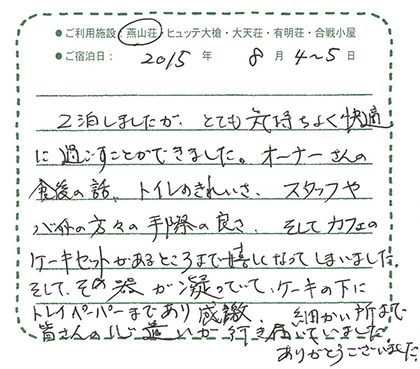 ●ご利用施設：燕山荘・ヒュッテ大槍・大天荘・有明荘・合戦小屋
●ご宿泊日： 2015 年 8 月 4〜5 日
2泊しましたが、とても気持ちよく快適
に過ごすことができました。オーナーさんの
食後の話、トイレのきれいさ、スタッフや
バイトの方々の手際の良さ、そしてカフェの
ケーキセットがあるところまで嬉しくなってしまいました。
そして、その器が凝っていて、ケーキの下に
トレイペーパーまであり感激、細かい所まで
皆さんの心遣いが行き届いていました
ありがとうございました。